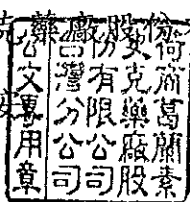 藥廠股份
荷商葛蘭素
史克藥廠股
份有限公司
台灣分公司
公文專用章